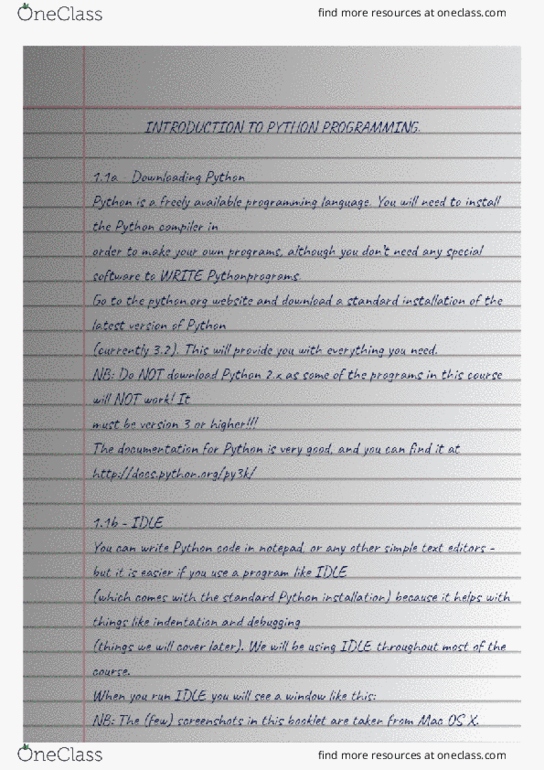 OneClass
find more resources at oneclass.com
INTRODUCTION TO PYTHON PROGRAMMING.
1.1a Downloading Python
Python is a freely available programming language. You will need to install
the Python compiler in
order to make your own programs, although you don't need any special
software to WRITE Pythonprograms.
Go to the python.org website and download a standard installation of the
latest version of Python
(currently 3.2). This will provide you with everything you need.
NB: Do NOT download Python 2.x as some of the programs in this course
will NOT work! It
must be version 3 or higher!!!
The documentation for Python is very good, and you can find it at
http://docs.python.org/py3k/
1.1b - IDLE
You can write Python code in notepad, or any other simple text editors -
but it is easier if you use a program like IDLE
(which comes with the standard Python installation) because it helps with
things like indentation and debugging
(things we will cover later). We will be using IDLE throughout most of the
course.
When you run IDLE you will see a window like this:
NB: The (few) screenshots in this booklet are taken from Mac OS X.
OneClass
find more resources at oneclass.com